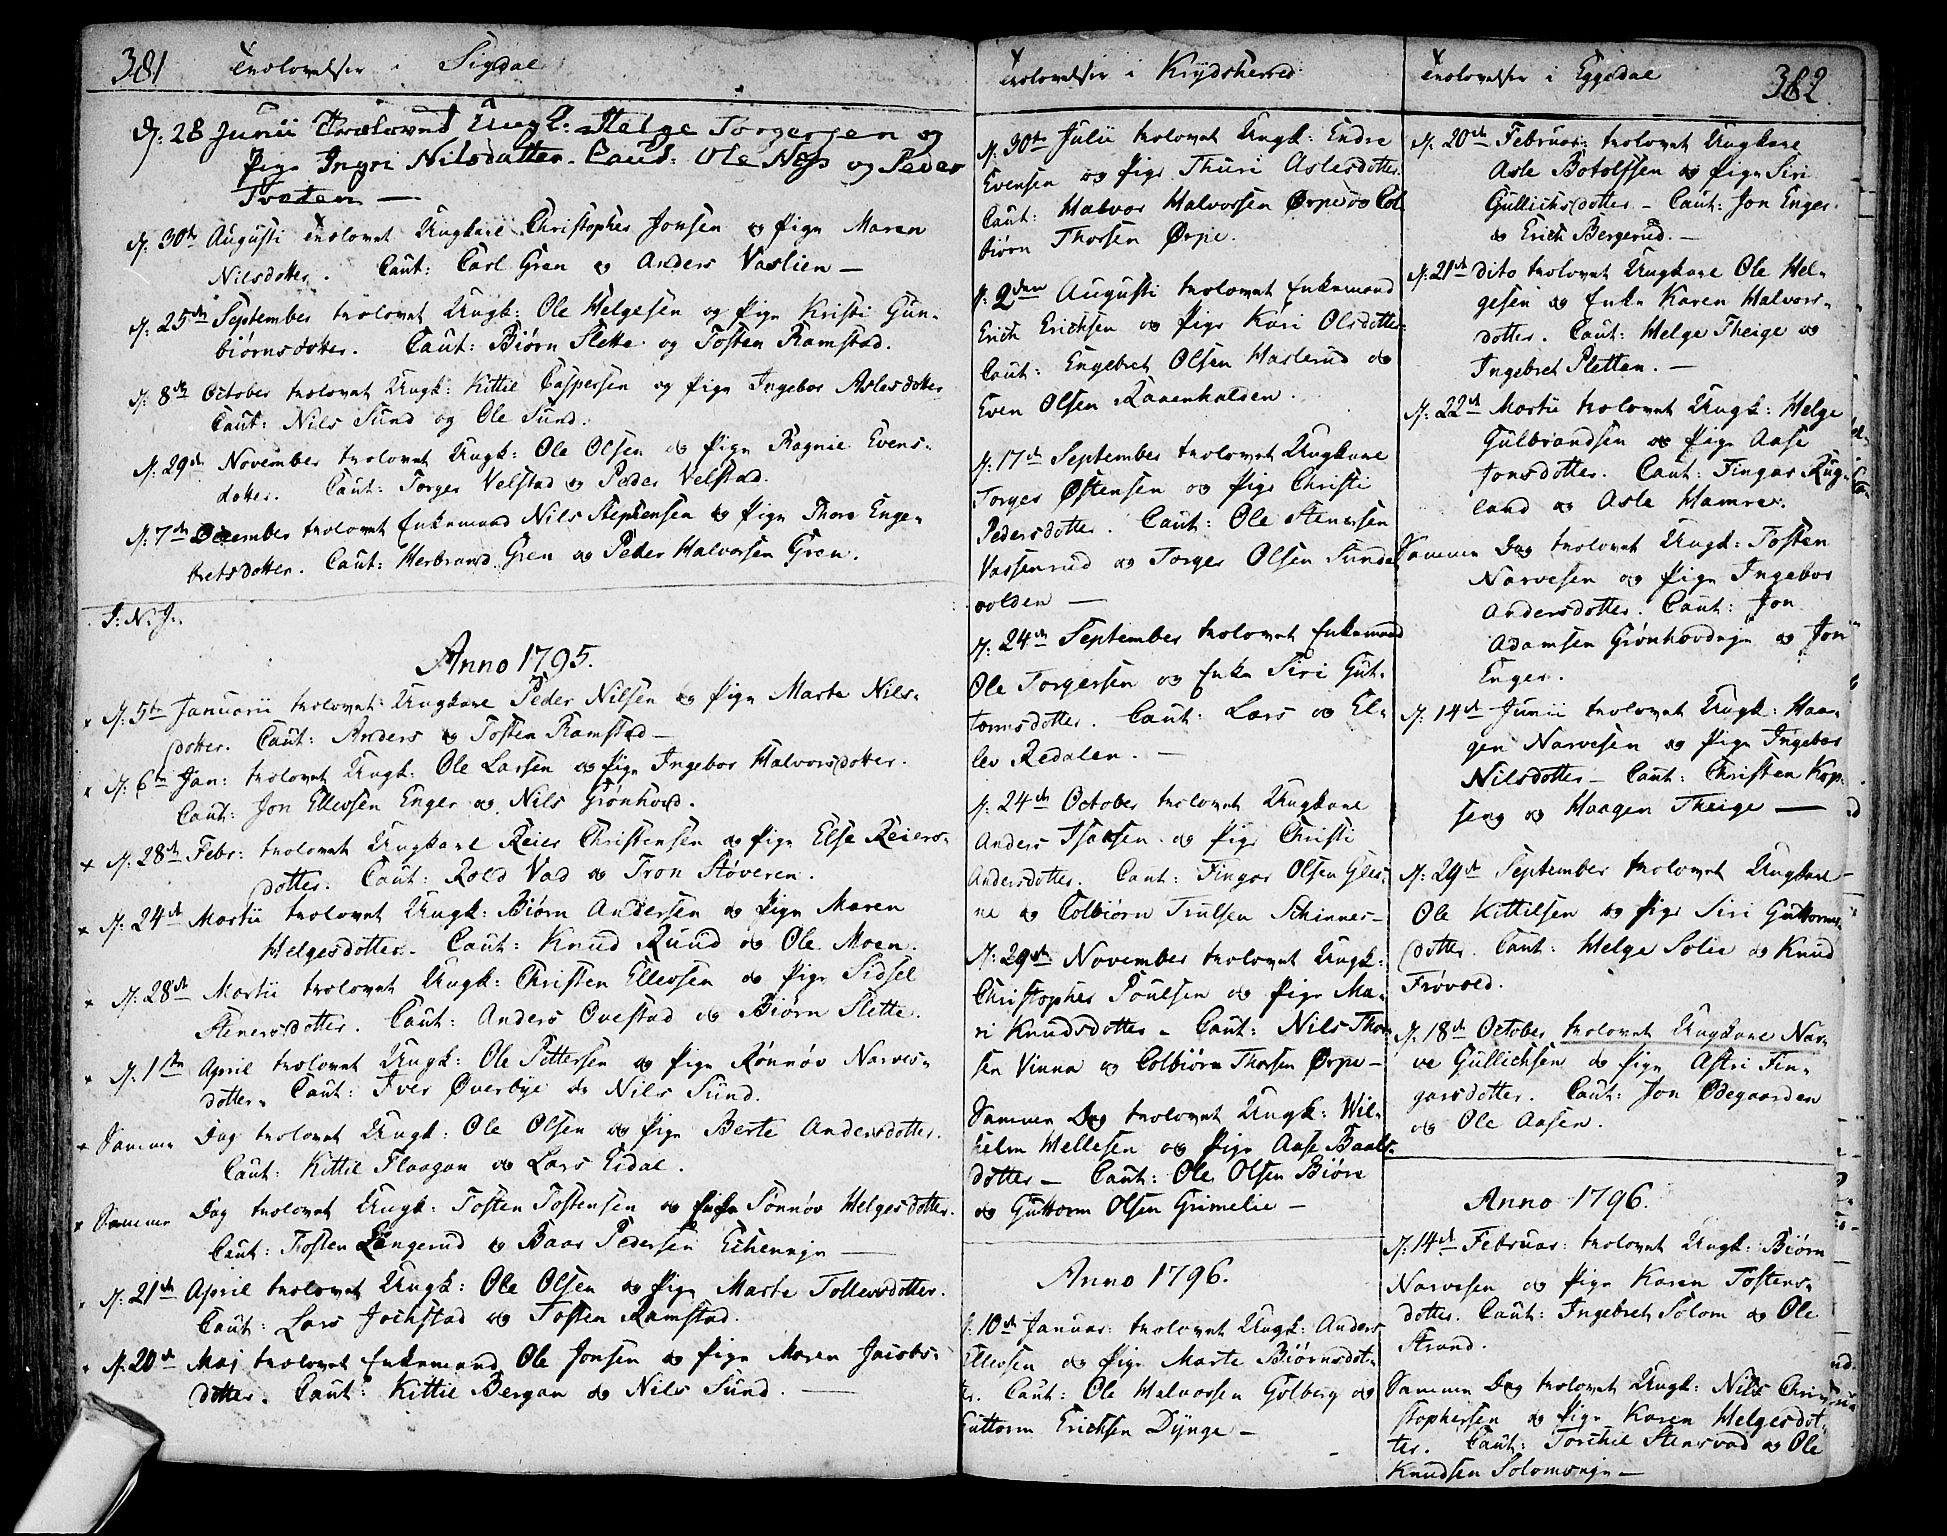 381 Trolovelser i Sigdal
D: 28 Junii Trolovet Ungk: Helge Torgersen og
Pige Ingri Nilsdatter. Caut: Ole Næss og Peder
Traten —
D: 30te Augusti trolovet Ungkarl Christopher Jonsen og Pige Maren
Nilsdotter. Caut: Carl Gren og Anders Vaslien —
D: 25de September trolovet Ungk: Ole Helgesen og Pige Kristi Gun-
biørnsdotter. Caut: Biørn Slette og Tosten Ramstad.
D: 8de October trolovet Ungk: Kittil Caspersen og Pige Ingebor Aslesdotter
Caut: Nils Sund og Ole Sund.
D: 29de November trolovet Ungk: Ole Olsen og Pige Ragnil Evens-
dotter. Caut: Torger Velstad og Peder Velstad.
D: 7de December trolovet Enkemand Nils Stephensen og Pige Thore Enge-
bretsdotter. Caut: Herbrand Gren og Peder Halvorsen Gren.
I: N: J:
Anno 1795.
D: 5te Januarii trolovet Ungkarl Peder Nilsen og Pige Marte Nils-
dotter. Caut: Anders og Tosten Ramstad —
D: 6te Jan: trolovet Ungk: Ole Larsen og Pige Ingebor Halvorsdotter.
Caut: Jon Ellevsen Enger og Nils Grønhovd.
D: 28de Febr: trolovet Ungkarl Reier Christensen og Pige Else Reiers-
dotter. Caut: Rold Vad og Tron Støveren.
D: 24de Martii trolovet Ungk: Biørn Andersen og Pige Maren
Helgesdotter. Caut: Knud Ruud og Ole Moen.
D: 28de Martii trolovet Ungk: Christen Ellevsen og Pige Sidsel
Stenersdotter. Caut: Anders Ovestad og Biørn Slette.
D: 1ste April trolovet Ungk: Ole Pettersen og Pige Rønnøv Narves-
dotter. Caut: Iver Øverbye og Nils Sund.
Samme Dag trolovet Ungk: Ole Olsen og Pige Berte Andersdotter.
Caut: Kittil Flaagan og Lars Eidal.
Samme Dag trolovet Ungk: Tosten Tostensen og Sønnøv Helgesdotter.
Caut: Tosten Lingerud og Baar Pedersen
D: 21de April trolovet Ungk: Ole Olsen og Pige Marte Tollevsdotter.
Caut: Lars Jochstad og Tosten Ramstad.
D: 20de Maj trolovet Enkemand Ole Jonsen og Pige Maren Jacobs-
dotter. Caut: Kittil Bergan og Nils Sund. —
Trolovelser i Krydsherred
D: 30te Julii trolovet Ungk: Endre
Evensen og Pige Thuri Aslesdotter.
Caut: Halvor Halvorsen Ørpe og Col-
biørn Thorsen Ørpe.
D: 2den Augusti trolovet Enkemand
Erich Erichsen og Pige Kari Olsdotter.
Caut: Engebret Olsen Haslerud og
Even Olsen Raaenhalden.
D: 17de September trolovet Ungkarl
Torger Østensen og Pige Christi
Pedersdotter. Caut: Ole Stenersen
Vassenrud og Torger Olsen Sunde
volden —
D: 24de September trolovet Enkemand
Ole Torgersen og Enke Siri Gut-
tormsdotter. Caut: Lars og El-
lev Redalen. —
D: 24de October trolovet Ungkarl
Anders Isacsen og Pige Christi
Andersdotter. Caut: Fingar Olsen Gles-
ne og Colbiørn Trulsen Schinnes—
D: 29de November trolovet Ungk:
Christopher Poulsen og Pige Ma-
ri Knudsdotter — Caut: Nils Thor
sen Vinna og Colbiørn Thorsen Ørpe —
Samme Dag trolovet Ungk: Wil-
helm Wellesen og Pige Aase Baals-
dotter — Caut: Ole Olsen Biøre
og Guttorm Olsen Grimelie —
Anno 1796.
D: 10de Januar: trolovet Ungk: Anders
Ellevsen og Pige Marte Biørnsdot-
ter. Caut: Ole Halvorsen Golberg og
Guttorm Erichsen Dynge —
Trolovelser i Eggedal 382
D: 20de Februar: trolovet Ungkarl
Asle Botolfsen og Pige Siri
Gullichsdotter — Caut: Jon Enger
og Erich Bergerud. —
D: 21de dito trolovet Ungkarl Ole Hel-
gesen og Enke Karen Halvors-
dotter. Caut: Helge Theige og
Ingebret Pletten. —
D: 22de Martii trolovet Ungk: Helge
Gulbrandsen og Pige Aase
Jonsdotter. Caut: Fingar Rug-
land og Asle Hamre.
Samme Dag trolovet Ungk: Tosten
Narvesen og Pige Ingebor
Andersdotter. Caut: Jon
Adamsen Grønhovdeje og Jon
Enger.
D: 14de Junii trolovet Ungk: Haa-
gen Narvesen og Pige Ingebor
Nilsdotter — Caut: Christen Kop-
seng og Haagen Theige —
D: 29de September trolovet Ungkarl
Ole Kittilsen og Pige Siri Guttorms-
dotter. Caut: Helge Solie og Knud
Frøvold.
D: 18de October trolovet Ungkarl Nar-
ve Gullichsen og Pige Astri Fin-
garsdotter. Caut: Jon Ødegaarden
og Ole Aasen.
Anno 1796.
D: 14de Februar: trolovet Ungk: Biørn
Narvesen og Pige Karen Tostens-
dotter. Caut: Ingebret Solom og Ole
Strand.
Samme Dag trolovet Ungk: Nils Chri-
stophersen og Pige Karen Helgesdot-
ter. Caut: Torchil Stensvad og Ole
Knudsen Solomseje —